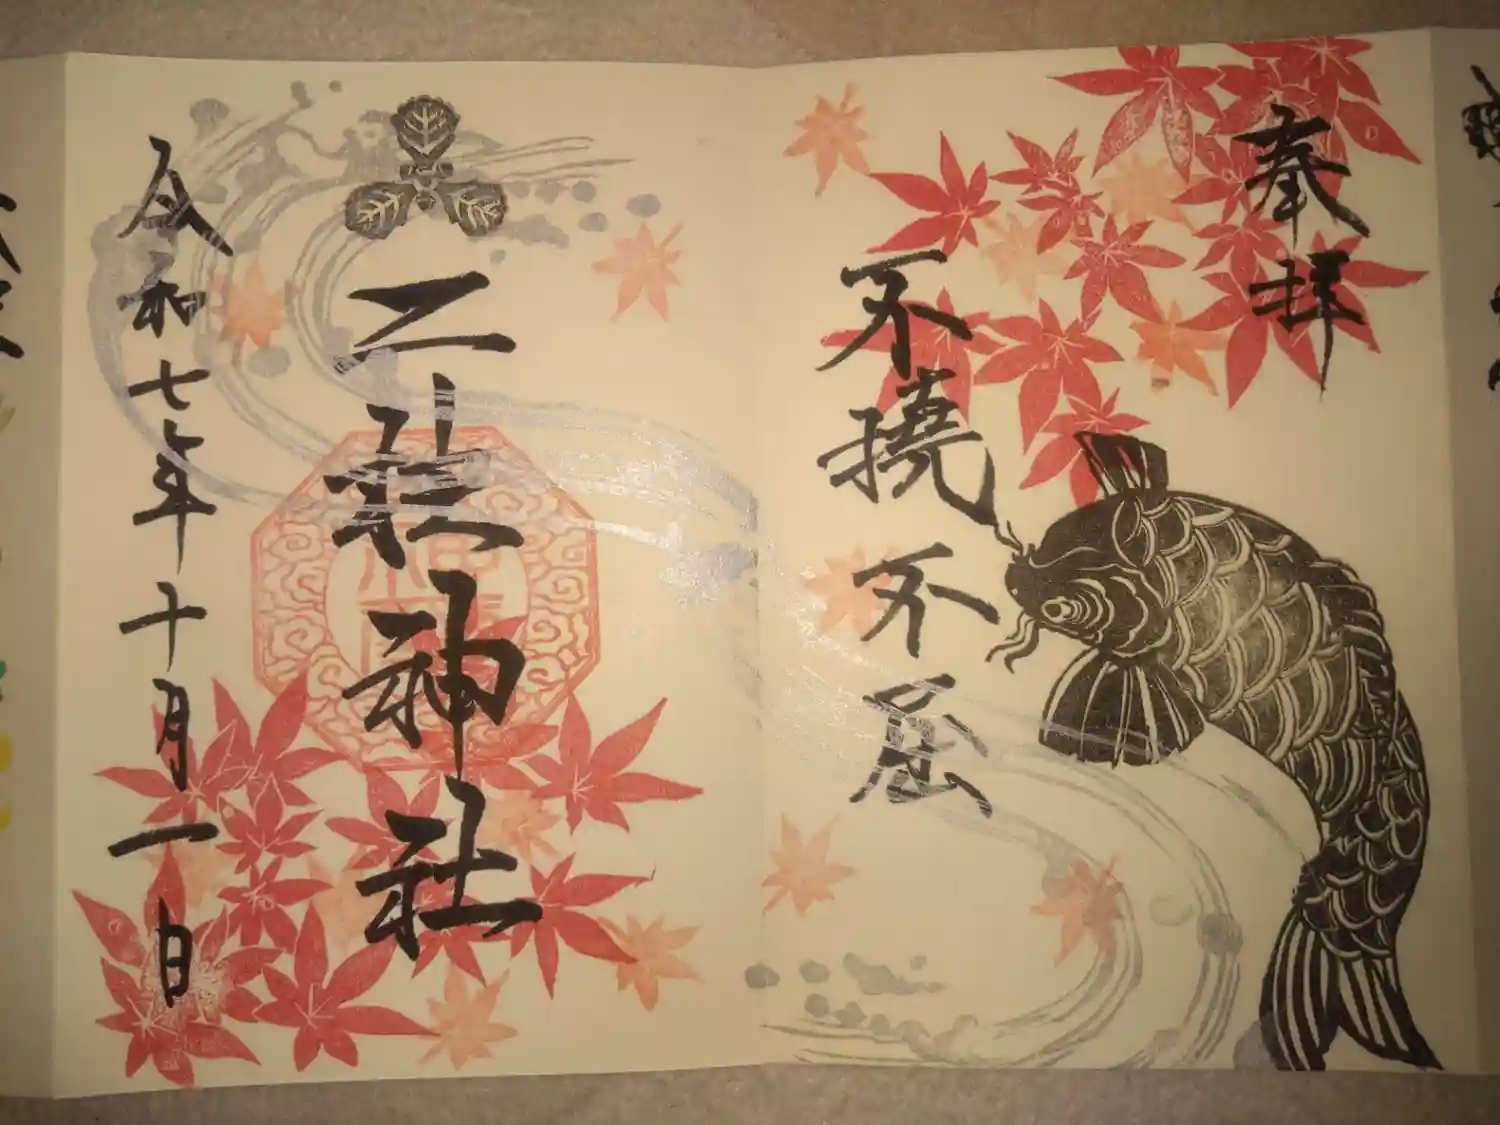 奉拝
不撓不屈
二柱神社
令和七年十月一日